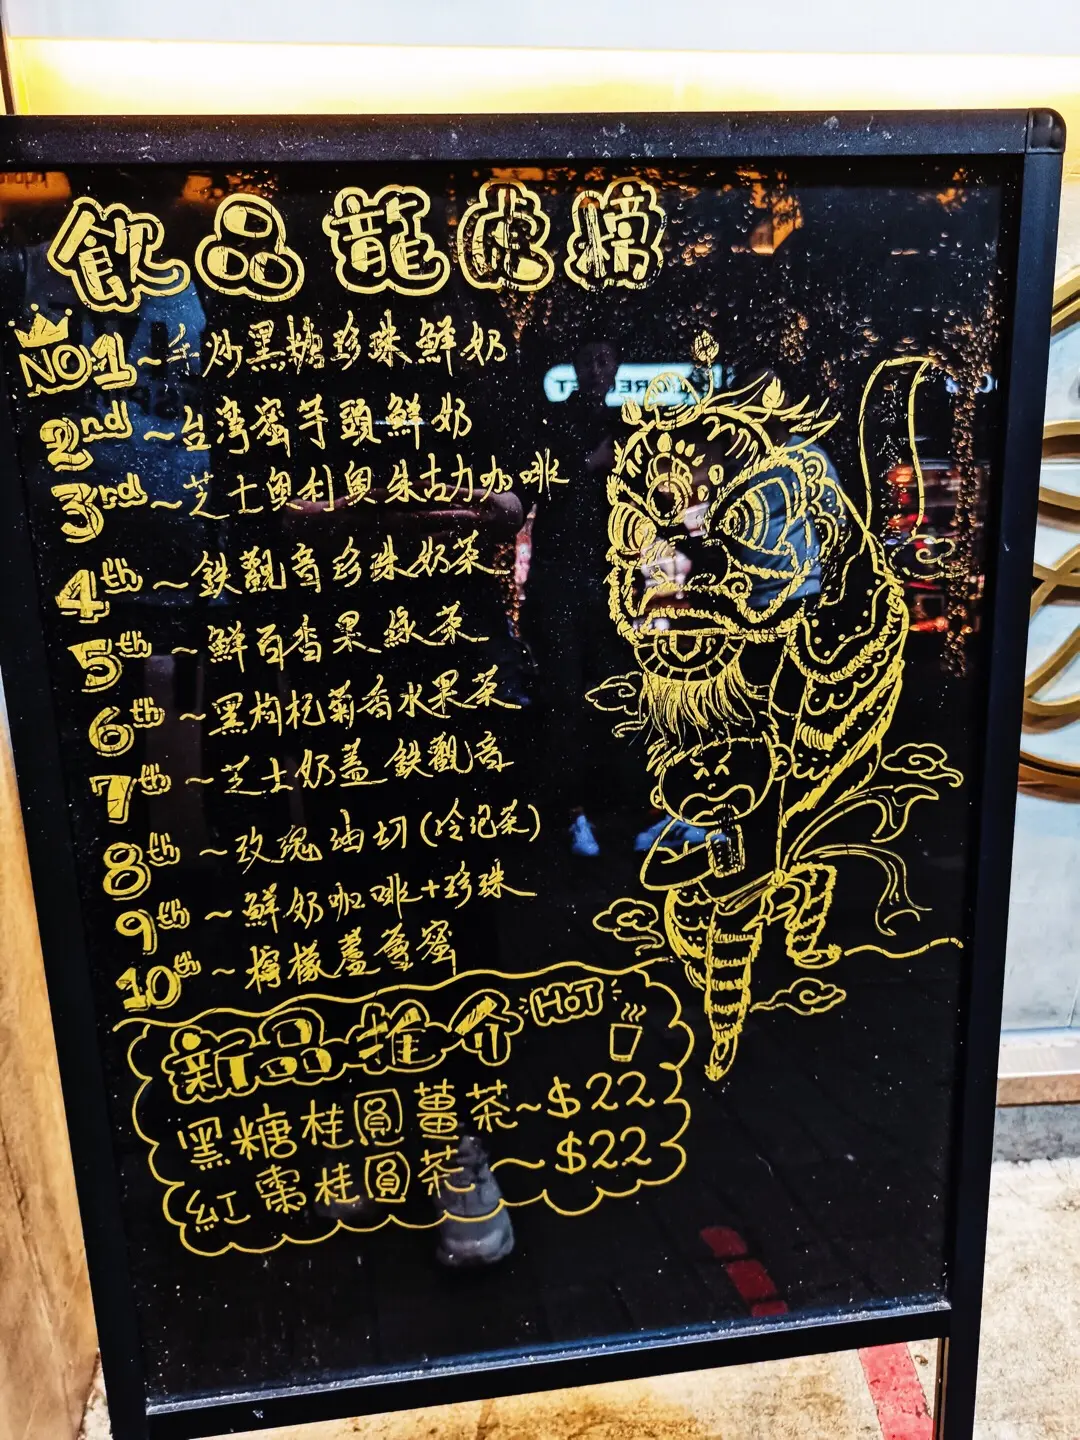 飲品龍虎榜
NO1~手炒黑糖珍珠鮮奶
2nd~台灣蜜芋頭鮮奶
3rd~芝士奧利奧朱古力咖啡
4th~鉄觀音珍珠奶茶
5th~鮮百香果綠茶
6th~黑枸杞菊香水果茶
7th~芝士奶蓋鉄觀音
8th~玫瑰油切(冷泡茶)
9th~鮮奶咖啡+珍珠
10th~檸檬蘆薈蜜
新品推介 HOT
黑糖桂圓薑茶~$22
紅棗桂圓茶~$22